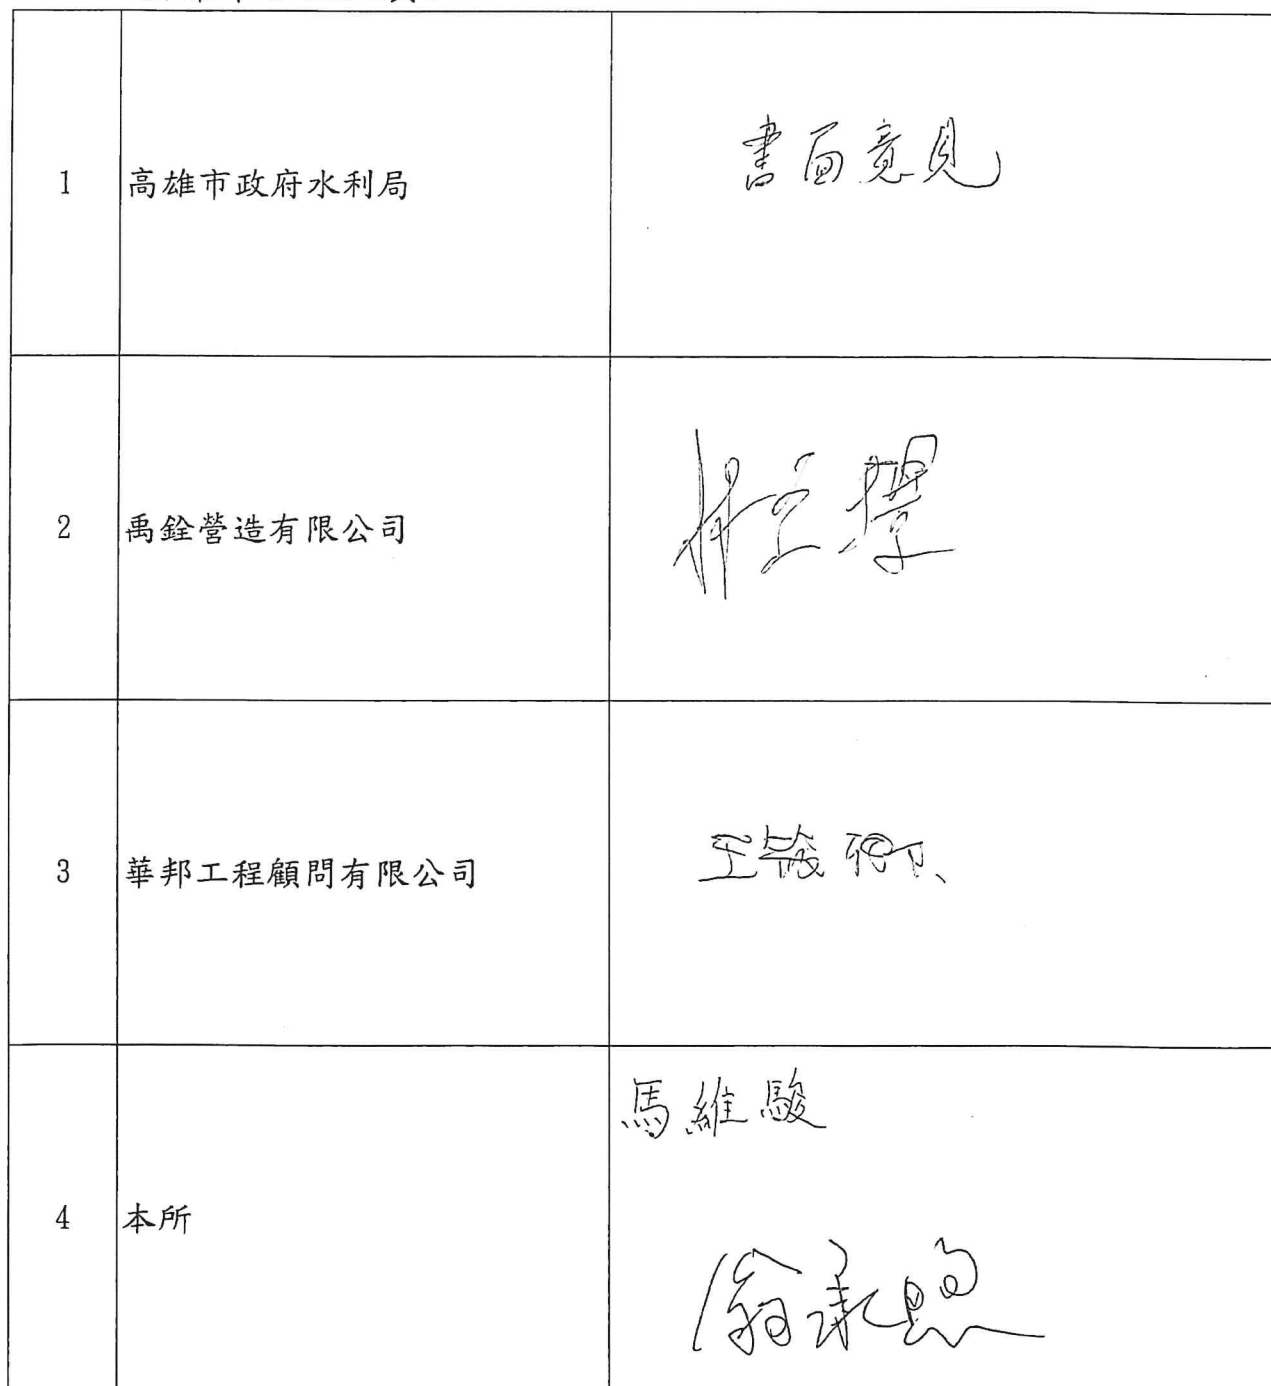 1
高雄市政府水利局
書面意見
2
禹銓營造有限公司
3
華邦工程顧問有限公司
4
本所
馬維駿
翁承